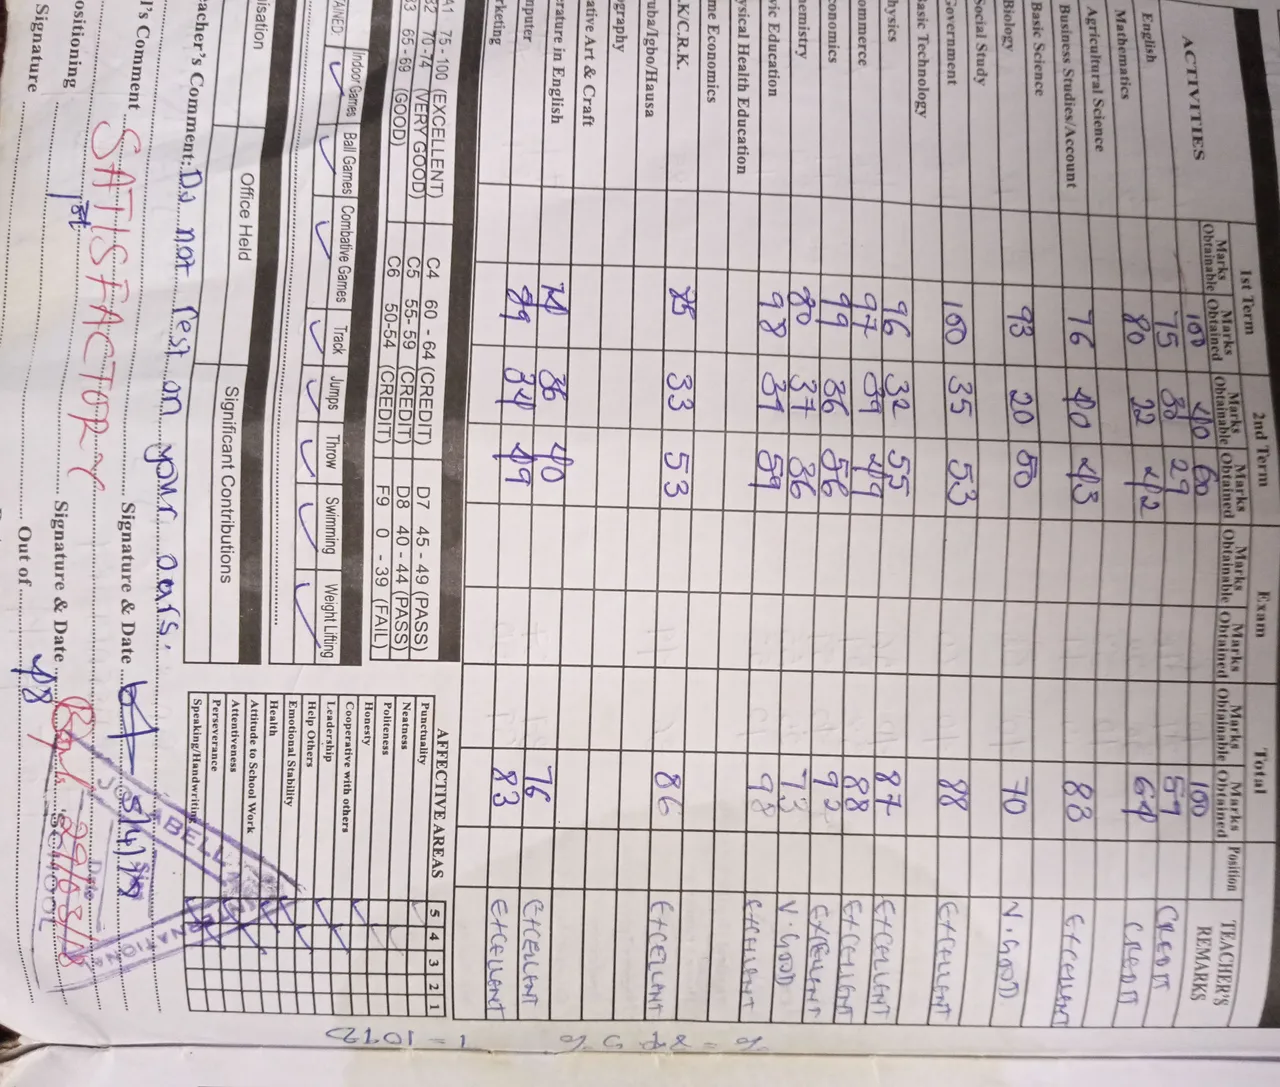 ACTIVITIES 1st Term 2nd Term Exam Total Position TEACHER'S REMARKS
Marks Obtainable Marks Obtained Marks Obtainable Marks Obtained Marks Obtainable Marks Obtained Marks Obtainable Marks Obtained
100 40 60 100
English 75 30 29 59 CREDIT
Mathematics 80 22 42 64 CREDIT
Agricultural Science
Business Studies/Account 76 40 43 83 EXCELLENT
Basic Science
Biology 93 20 50 70 V.GOOD
Social Study
Government 100 35 53 88 EXCELLENT
Basic Technology
hysics 96 32 55 87 EXCELLENT
ommerce 97 39 49 88 EXCELLENT
conomics 99 36 56 92 EXCELLENT
emistry 80 37 36 73 V.GOOD
vic Education 98 39 59 98 EXCELLENT
ysical Health Education
me Economics
.K/C.R.K. 85 33 53 86 EXCELLENT
uba/Igbo/Hausa
ography
ative Art & Craft
erature in English 36 40 76 EXCELLENT
mputer 89 34 49 83 EXCELLENT
rketing
A1 75 - 100 (EXCELLENT) C4 60 - 64 (CREDIT) D7 45 - 49 (PASS)
B2 70 -74 (VERY GOOD) C5 55- 59 (CREDIT) D8 40 - 44 (PASS)
B3 65 - 69 (GOOD) C6 50-54 (CREDIT) F9 0 - 39 (FAIL)
Indoor Games Ball Games Combative Games Track Jumps Throw Swimming Weight Lifting
TAINED
isation Office Held Significant Contributions
AFFECTIVE AREAS 5 4 3 2 1
Punctuality
Neatness
Politeness
Honesty
Cooperative with others
Leadership
Help Others
Emotional Stability
Health
Attitude to School Work
Attentiveness
Perseverance
Speaking/Handwriting
eacher's Comment: Do not rest on your oars.
l's Comment SATISFACTORY Signature & Date
ositioning 1st Signature & Date
Signature Out of 48